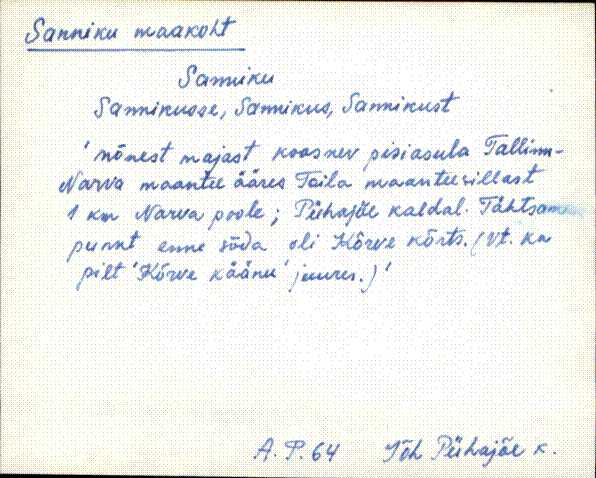 Sanniku maakoht
Sanniku
Sannikusse, Sannikus, Sannikust
'mõnest majast koosnev pisiasula Tallinn-
Narva maantee ääres Toila maanteesillast
1 km Narva poole; Pühajõe kaldal. Tähtsam
punkt enne sõda oli Kõrve kõrts. (Vt. ka
pilt 'Kõrve käänu' juures.)'
A. P. 64 Jõh Pühajõe k.